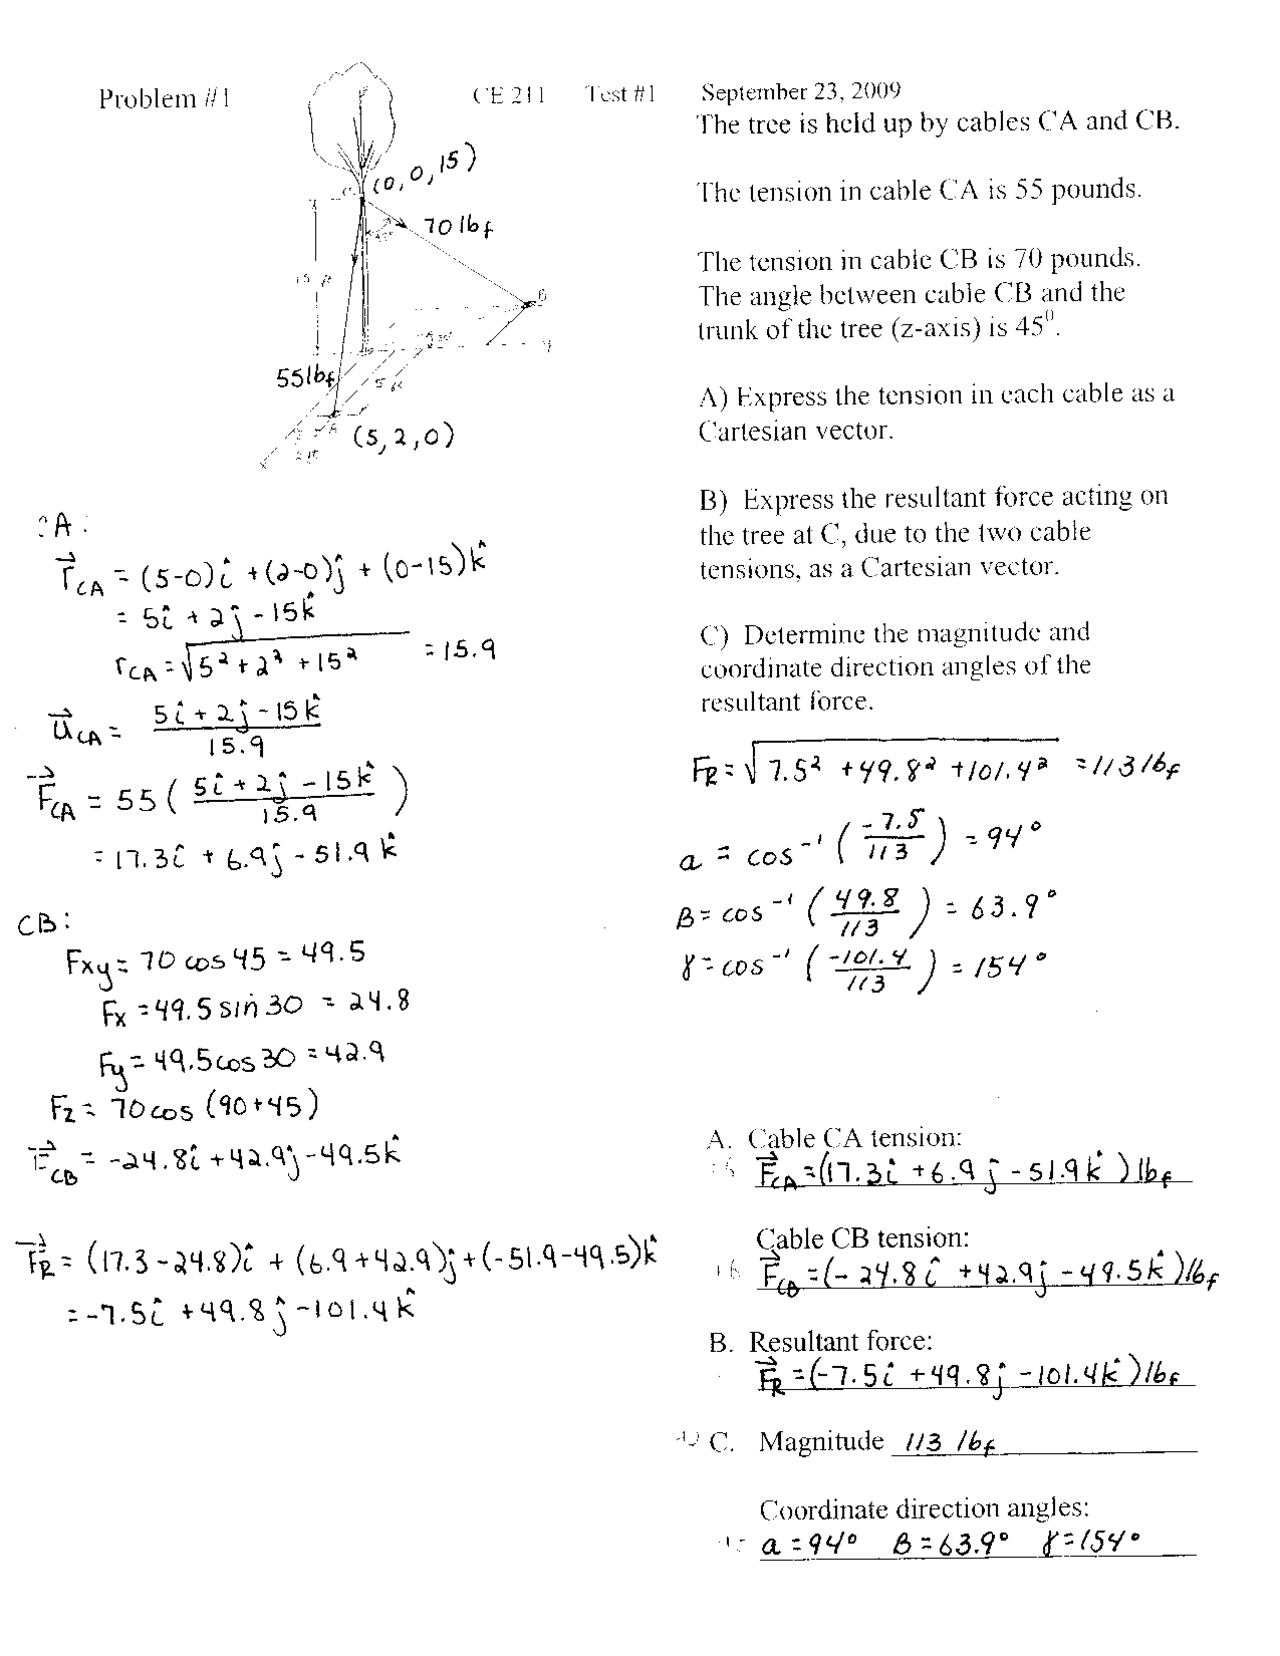 Problem #1
CE 211 Test #1 September 23, 2009
The tree is held up by cables CA and CB.
The tension in cable CA is 55 pounds.
The tension in cable CB is 70 pounds.
The angle between cable CB and the
trunk of the tree (z-axis) is 45⁰.
A) Express the tension in each cable as a
Cartesian vector.
B) Express the resultant force acting on
the tree at C, due to the two cable
tensions, as a Cartesian vector.
C) Determine the magnitude and
coordinate direction angles of the
resultant force.
(0,0,15)
70 lbf
45°
15 ft
B
y
55 lbf
5 ft
A
(5,2,0)
2 ft
CA:
r⃗CA = (5-0)î + (2-0)ĵ + (0-15)k̂
= 5î + 2ĵ - 15k̂
rCA = √(5² + 2² + 15²) = 15.9
u⃗CA = (5î + 2ĵ - 15k̂)/15.9
F⃗CA = 55 ( (5î + 2ĵ - 15k̂)/15.9 )
= 17.3î + 6.9ĵ - 51.9k̂
CB:
Fxy = 70 cos 45 = 49.5
Fx = 49.5 sin 30 = 24.8
Fy = 49.5 cos 30 = 42.9
Fz = 70 cos (90+45)
F⃗CB = -24.8î + 42.9ĵ - 49.5k̂
F⃗R = (17.3 - 24.8)î + (6.9 + 42.9)ĵ + (-51.9 - 49.5)k̂
= -7.5î + 49.8ĵ - 101.4k̂
FR = √(7.5² + 49.8² + 101.4²) = 113 lbf
α = cos⁻¹ ( -7.5/113 ) = 94°
β = cos⁻¹ ( 49.8/113 ) = 63.9°
γ = cos⁻¹ ( -101.4/113 ) = 154°
A. Cable CA tension:
F⃗CA = (17.3î + 6.9ĵ - 51.9k̂) lbf
Cable CB tension:
F⃗CB = (-24.8î + 42.9ĵ - 49.5k̂) lbf
B. Resultant force:
F⃗R = (-7.5î + 49.8ĵ - 101.4k̂) lbf
C. Magnitude 113 lbf
Coordinate direction angles:
α = 94° β = 63.9° γ = 154°